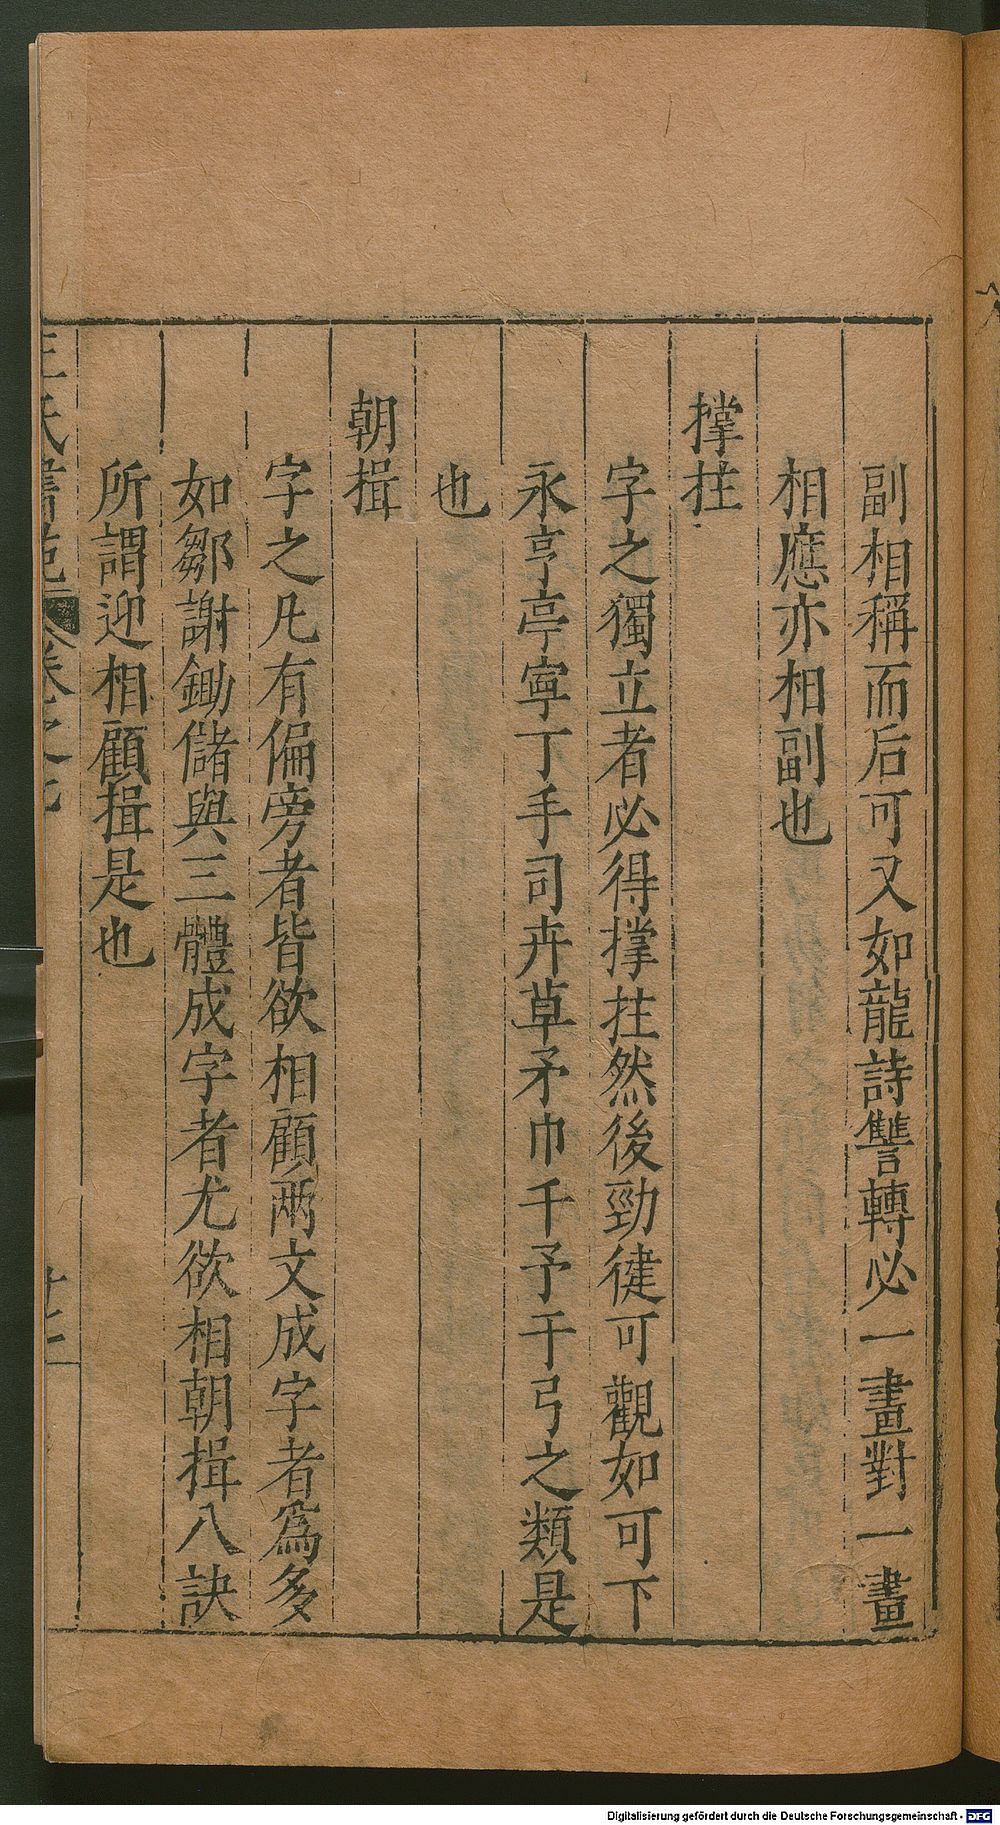 副相稱而后可又如龍詩讐轉必一畫對一畫
相應亦相副也
撑拄
字之獨立者必得撑拄然後勁徤可觀如可下
永亨亭寧丁手司卉草矛巾千予干弓之類是
也
朝揖
字之凡有偏旁者皆欲相顧兩文成字者爲多
如鄒謝鋤儲與三體成字者尤欲相朝揖八訣
所謂迎相顧揖是也
王氏書苑 卷之
Digitalisierung gefördert durch die Deutsche Forschungsgemeinschaft - DFG